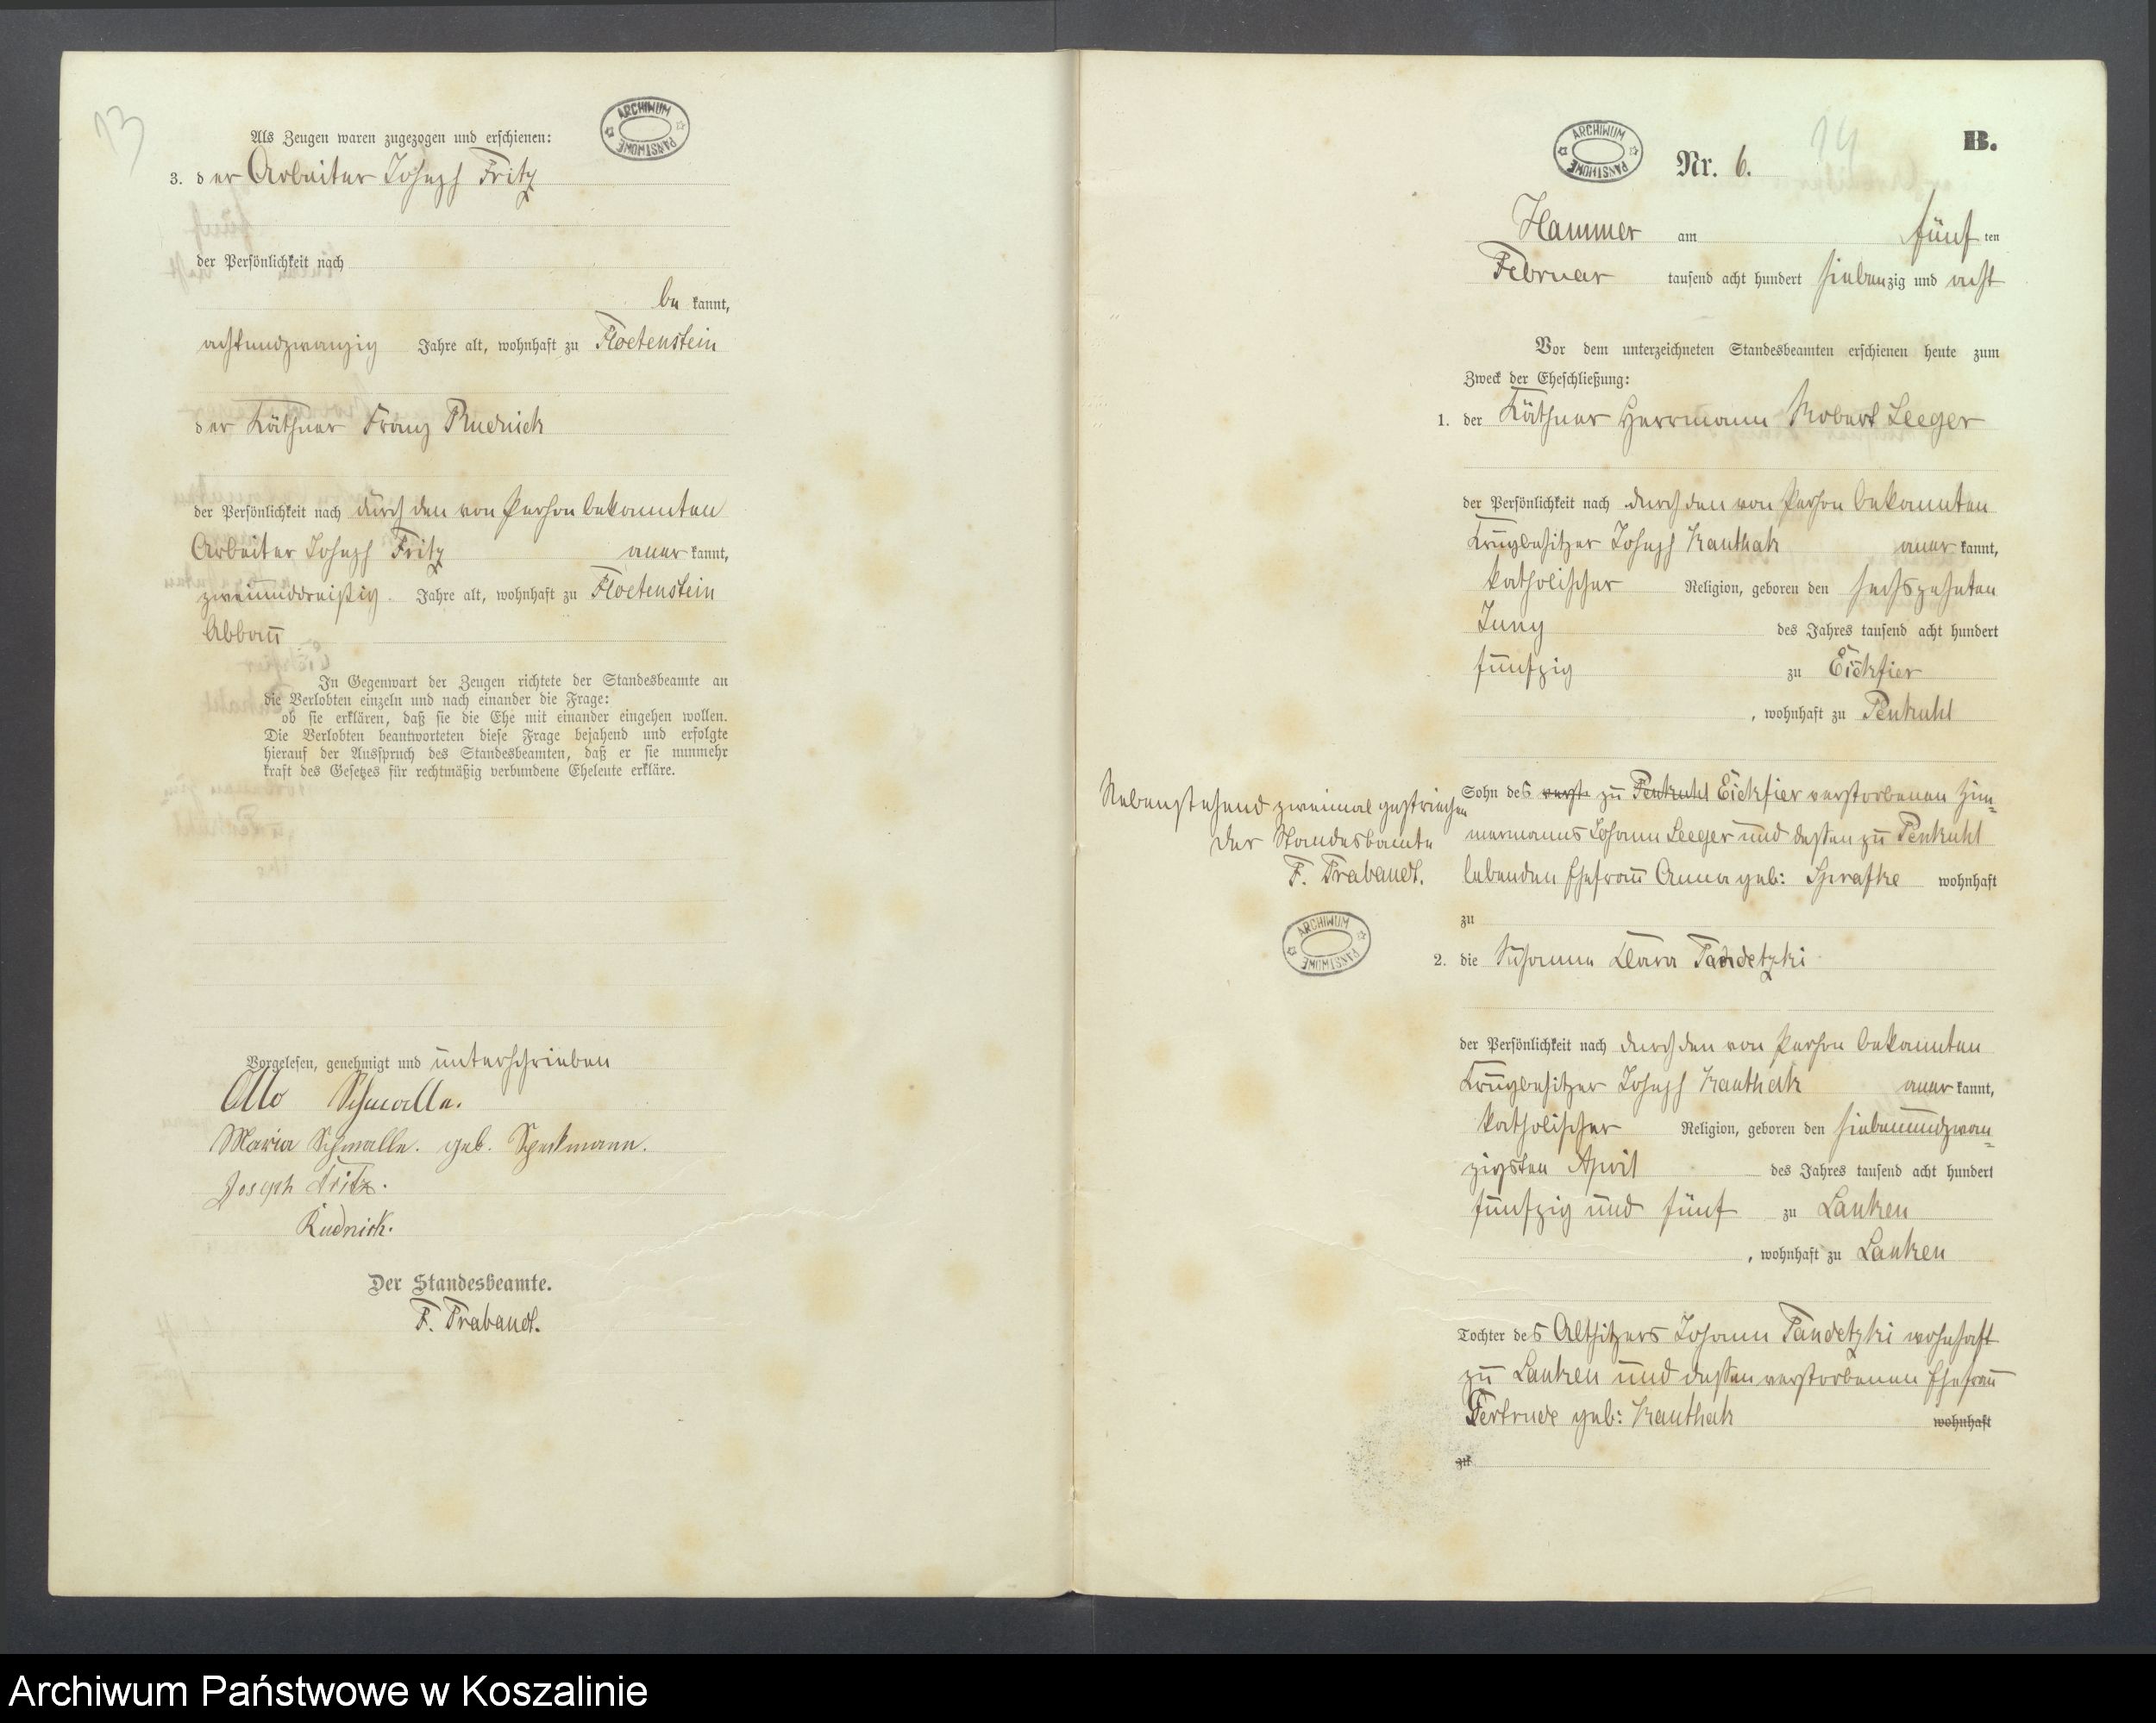 13
Als Zeugen waren zugezogen und erschienen:
ARCHIWUM PAŃSTWOWE
3. der Arbeiter Joseph Fritz
der Persönlichkeit nach
be kannt,
achtundzwanzig Jahre alt, wohnhaft zu Floetenstein
der Käthner Franz Rudnick
der Persönlichkeit nach durch den von Person bekannten
Arbeiter Joseph Fritz aner kannt,
zweiunddreißig Jahre alt, wohnhaft zu Floetenstein
Abbau
In Gegenwart der Zeugen richtete der Standesbeamte an
die Verlobten einzeln und nach einander die Frage:
ob sie erklären, daß sie die Ehe mit einander eingehen wollen.
Die Verlobten beantworteten diese Frage bejahend und erfolgte
hierauf der Ausspruch des Standesbeamten, daß er sie nunmehr
kraft des Gesetzes für rechtmäßig verbundene Eheleute erkläre.
Vorgelesen, genehmigt und unterschrieben
Otto Schmalle.
Maria Schmalle. geb. Speckmann.
Joseph Fritz.
Rudnick.
Der Standesbeamte.
F. Trabandt.
14
B.
ARCHIWUM PAŃSTWOWE
Nr. 6.
Hammer am fünf ten
Februar tausend acht hundert siebenzig und acht
Vor dem unterzeichneten Standesbeamten erschienen heute zum
Zweck der Eheschließung:
1. der Käthner Herrmann Robert Seeger
der Persönlichkeit nach durch den von Person bekannten
Krugbesitzer Joseph Kauthak aner kannt,
katholischer Religion, geboren den sechszehnten
Juny des Jahres tausend acht hundert
fünfzig zu Eickfier
, wohnhaft zu Penkuhl
Sohn des verst. zu Penkuhl Eickfier verstorbenen Zim-
mermanns Johann Seeger und dessen zu Penkuhl
lebenden Ehefrau Anna geb: Sprafke wohnhaft
zu
Nebenstehend zweimal gestrichen
Der Standesbamte
F. Trabandt.
ARCHIWUM PAŃSTWOWE
2. die Susanna Clara Pandetzki
der Persönlichkeit nach durch den von Person bekannten
Krugbesitzer Joseph Kauthak aner kannt,
katholischer Religion, geboren den siebenundzwan-
zigsten April des Jahres tausend acht hundert
fünfzig und fünf zu Lanken
, wohnhaft zu Lanken
Tochter des Altsitzers Johann Pandetzki wohnhaft
zu Lanken und dessen verstorbenen Ehefrau
Gertrude geb: Kauthak wohnhaft
zu
Archiwum Państwowe w Koszalinie